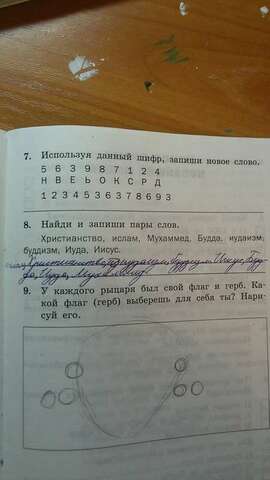 7. Используя данный шифр, запиши новое слово.
5 6 3 9 8 7 1 2 4
Н В Е Ь О К С Р Д
1 2 3 4 5 3 6 7 8 6 9 3
8. Найди и запиши пары слов.
Христианство, ислам, Мухаммед, Будда, иудаизм,
буддизм, Иуда, Иисус.
Христианство, Иисус, Буд-
да, Иуда, Мухаммед
9. У каждого рыцаря был свой флаг и герб. Ка-
кой флаг (герб) выберешь для себя ты? Нари-
суй его.